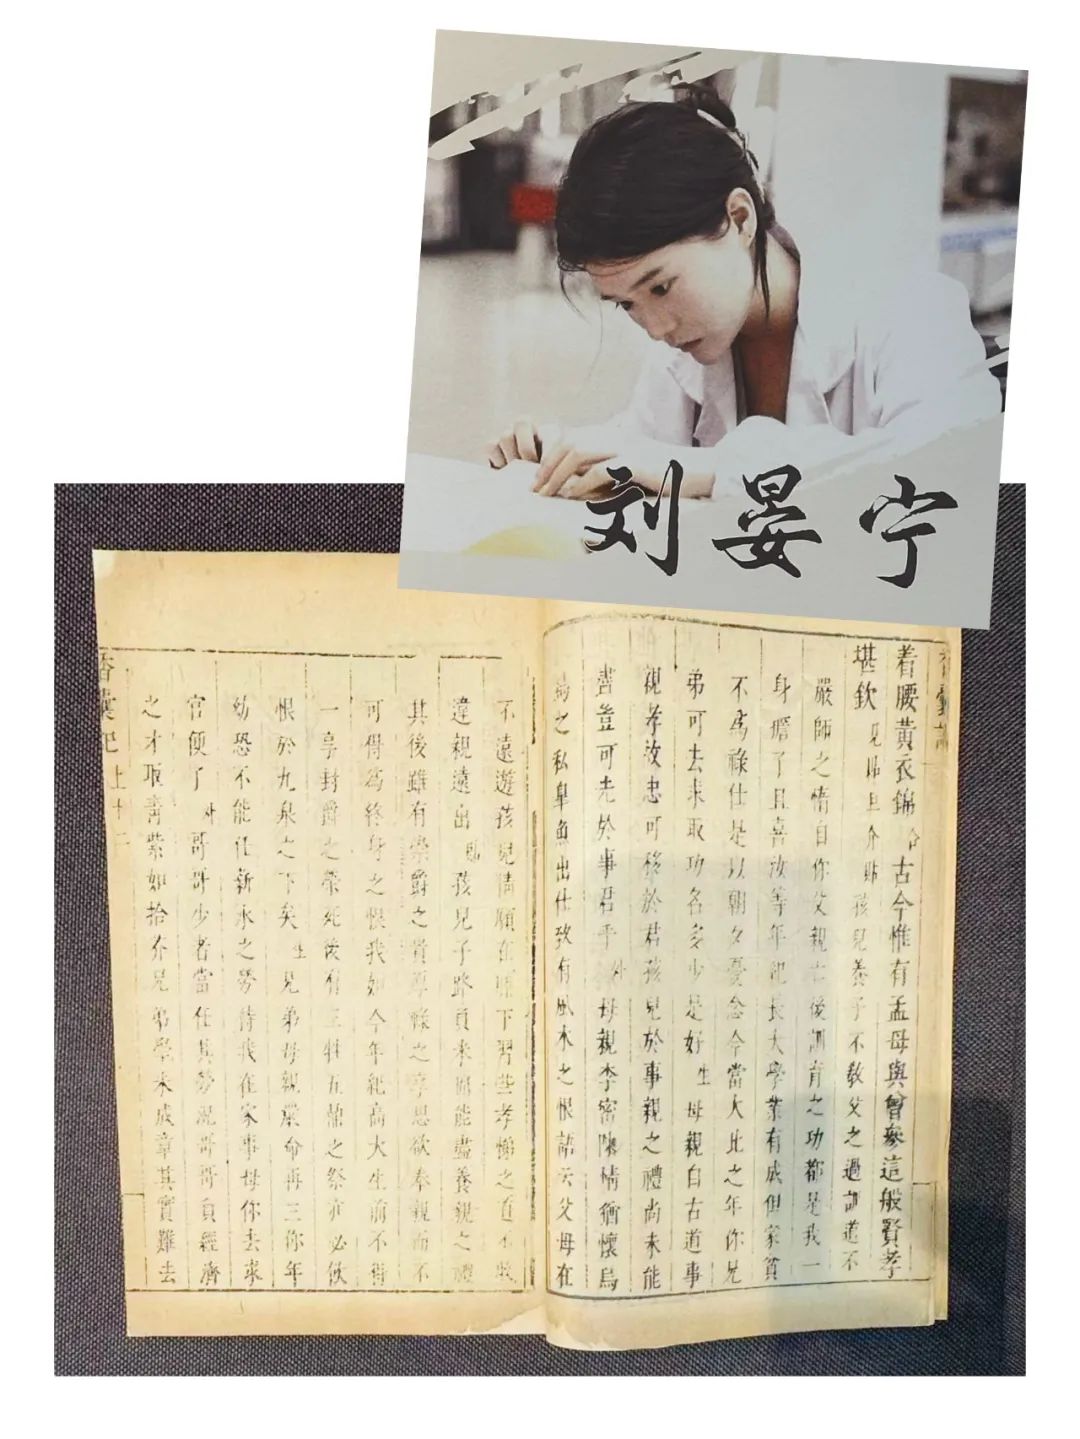 刘晏宁
香囊記
着腰黃衣錦合古今惟有孟母與曾參這般賢孝
堪欽見貼旦介貼孩兒養子不教父之過訓道不
嚴師之惰自你父親亡後訓育之功都是我一
身擔了且喜汝等年紀長大學業有成但家貧
不為祿仕是以朝夕憂念今當大比之年你兄
弟可去求取功名多少是好生母親自古道事
親孝故忠可移於君孩兒於事親之禮尚未能
盡豈可先於事君乎外母親李密陳情猶懷烏
鳥之私皐魚出仕致有風木之恨語云父母在
不遠遊孩兒情願在膝下習些孝悌之道不敢
違親遠出貼孩兒子路負米固能盡養親之禮
其後雖有榮爵之貴尊祿之享思欲奉親而不
可得為終身之恨我如今年紀高大生前不得
一享封爵之榮死後有三牲五鼎之祭亦必飲
恨於九泉之下矣生兄弟母親嚴命再三你年
幼恐不能任薪水之勞待我在家事母你去求
官便了外哥哥少者當任其勞況哥哥負經濟
之才取青紫如拾芥兄弟學未成章其實難去
香囊記 上十二